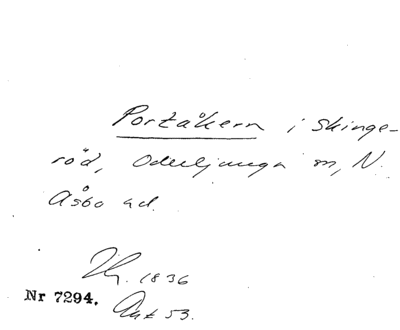 Portåkern i Skinge-
röd, Oderljunga sn, N.
Åsbo hd.
Hg. 1836
Nr 7294. Akt 53.